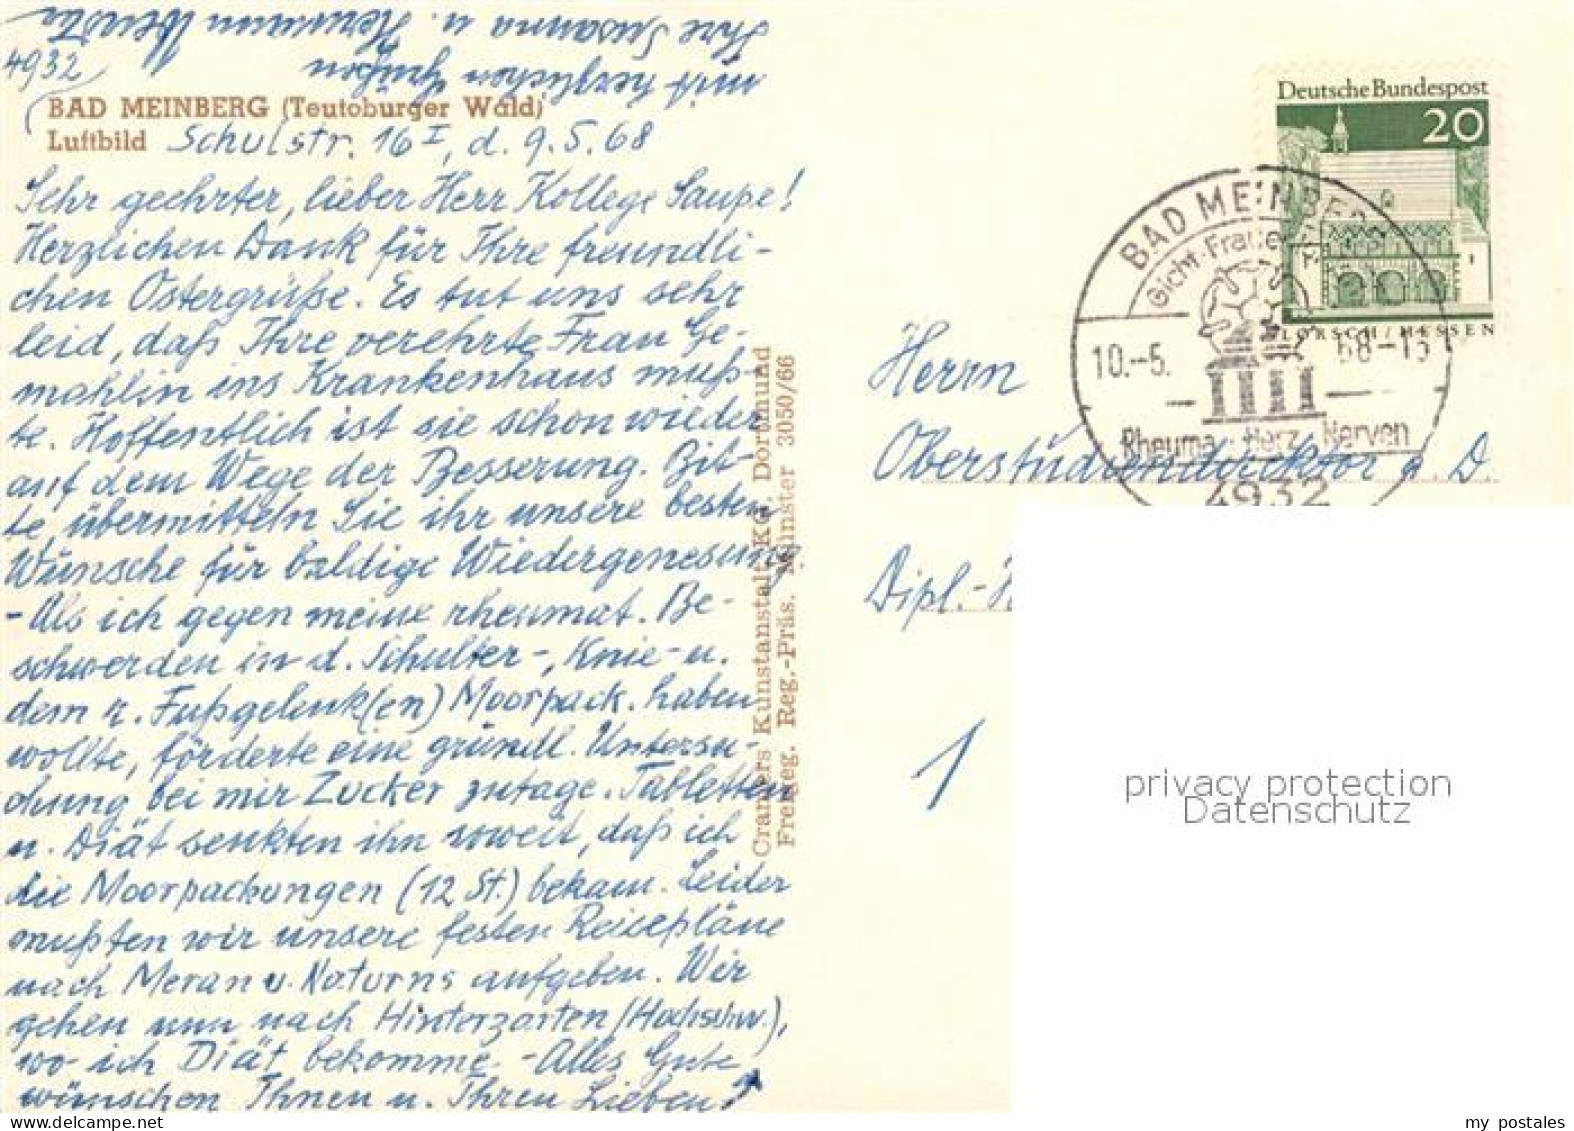 4932
BAD MEINBERG (Teutoburger Wald)
Luftbild Schulstr. 16 I, d. 9.5.68
Sehr geehrter, lieber Herr Kollege Saupe!
Herzlichen Dank für Ihre freundli-
chen Ostergrüße. Es tut uns sehr
leid, daß Ihre verehrte Frau Ge-
mahlin ins Krankenhaus muß-
te. Hoffentlich ist sie schon wieder
auf dem Wege der Besserung. Bit-
te übermitteln Sie ihr unsere besten
Wünsche für baldige Wiedergenesung
- Als ich gegen meine rheumat. Be-
schwerden in d. Schulter-, Knie- u.
dem r. Fußgelenk(en) Moorpack. haben
wollte, förderte eine gründl. Untersu-
chung bei mir Zucker zutage. Tabletten
u. Diät senkten ihn soweit, daß ich
die Moorpackungen (12 St.) bekam. Leider
mußten wir unsere festen Reisepläne
nach Meran u. Naturns aufgeben. Wir
gehen nun nach Hinterzarten (Hochschw.),
wo ich Diät bekomme. - Alles Gute
wünschen Ihnen u. Ihren Lieben
mit herzlichen Grüßen
Ihre Susanna u. Hermann
Cramers Kunstanstalt KG, Dortmund
Freigeg. Reg.-Präs. Münster 3050/66
Deutsche Bundespost
20
LORSCH/HESSEN
BAD MEINBERG
Gicht·Frauen
10.-5. 68-15
Rheuma · Herz · Nerven
4932
Herrn
Oberstudiendirektor a. D.
Dipl.-
1
privacy protection
Datenschutz
my postales